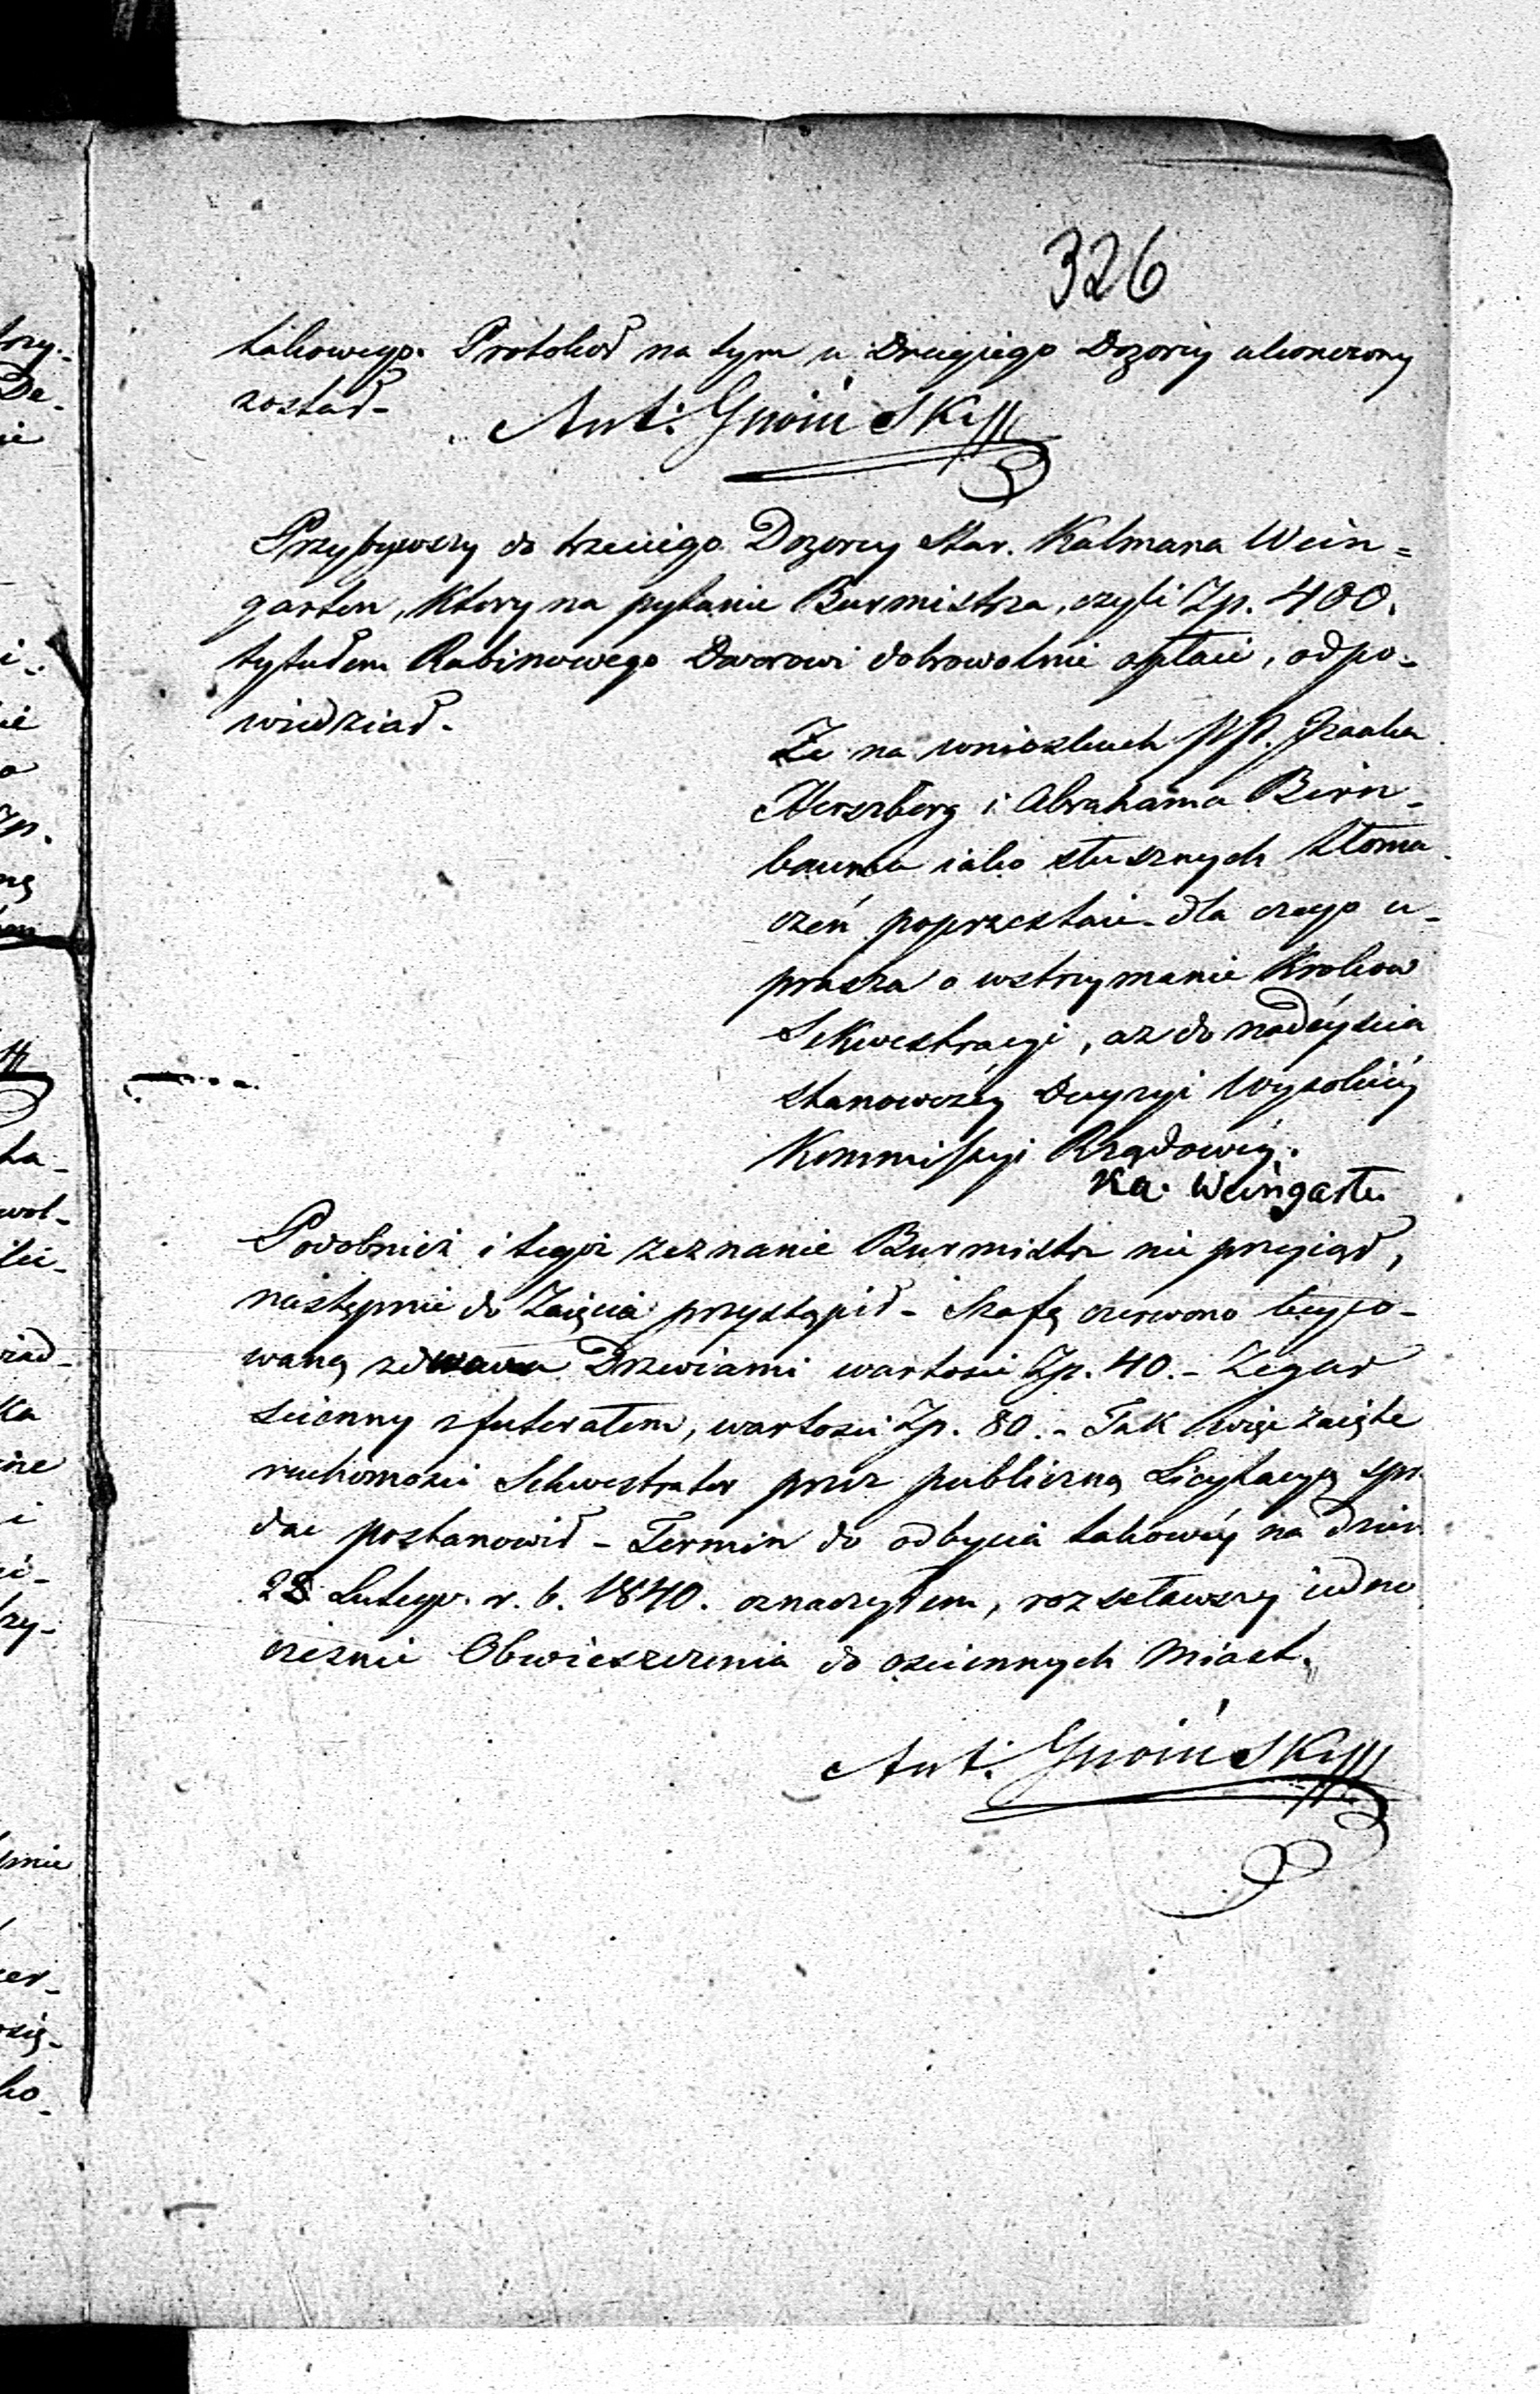 326
takowego. Protokoł na tym u Drugiego Dozorcy ukonczony
został-
Ant: Gnoiński
Przybywszy do trzeciego Dozorcy Star. Kalmana Wein=
garten, Ktory na pytanie Burmistrza, czyli Zp. 400.
tytułem Rabinowego Dworowi dobrowolnie opłaci, odpo-
wiedział-
Że na wnioskach PP. Izaaka
Herszberg i Abrahama Birn-
bauma iako słusznych tłoma
czeń poprzestaie- dla czego u-
prasza o wstrzymanie Krokow
Sekwestracyi, aż do nadeyscia
stanowczéy Decyzyi Wysokiéy
Kommissyi Rządowéy.
Ka. Weingarten
Podobnież i tegoż zeznanie Burmistrz nie przyiął,
następnie do Zaięcia przystąpił- Szafę czerwono beyco-
waną zdwoma Drzwiami wartosci Zp. 40.- Zegar
scienny z futerałem, wartosci Zp. 80.- Tak więc zaięte
ruchomosci Sekwestrator przez publiczną Licytacyą spr.
dac postanowił- Termin do odbycia takowéy na dzien
28 Lutego. r. b. 1840. oznaczyłem, rozsławszy iedno
cześnie Obwieszczenia do osciennych Miast.
Ant: Gnoiński